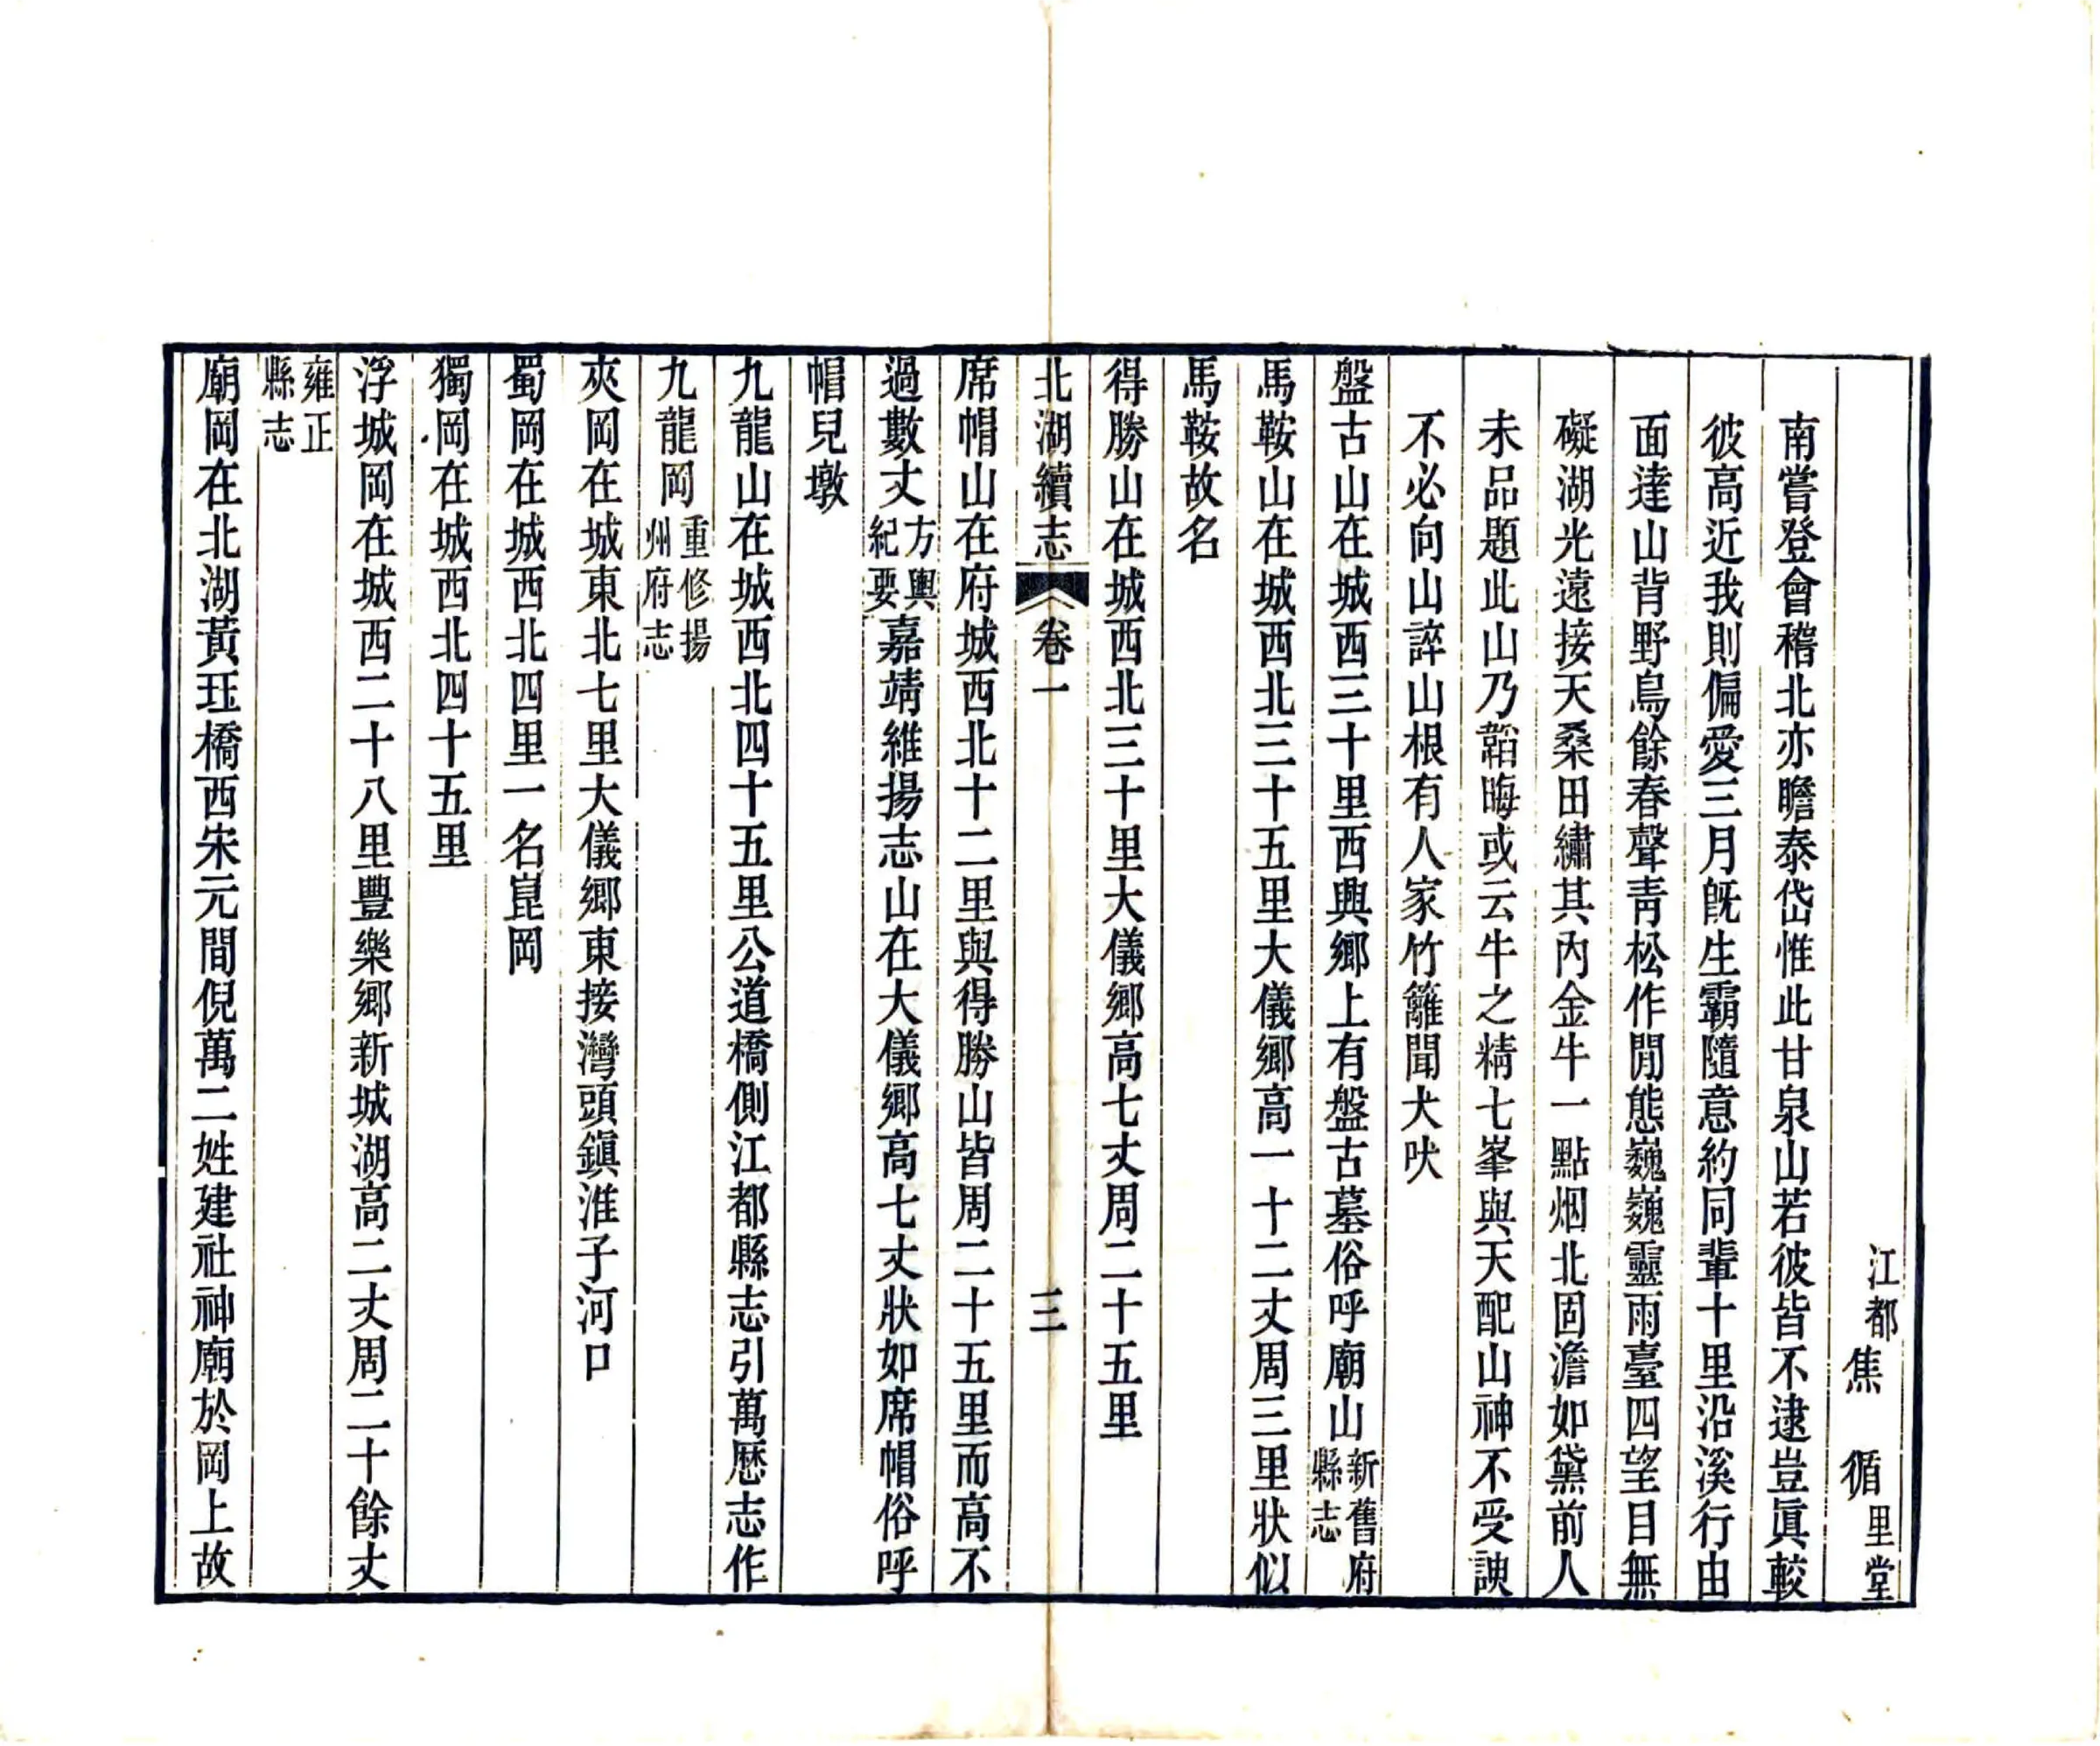 江都焦　循里堂
南嘗登會稽北亦瞻泰岱惟此甘泉山若彼皆不逮豈眞較
彼高近我則偏愛三月旣生霸隨意約同輩十里沿溪行由
面達山背野鳥餘春聲靑松作閒態巍巍靈雨臺四望目無
礙湖光遠接天桑田繡其內金牛一點烟北固澹如黛前人
未品題此山乃韜晦或云牛之精七峯與天配山神不受諛
不必向山誶山根有人家竹籬聞犬吠
盤古山在城西三十里西興鄉上有盤古墓俗呼廟山新舊府縣志
馬鞍山在城西北三十五里大儀鄉高一十二丈周三里狀似
馬鞍故名
得勝山在城西北三十里大儀鄉高七丈周二十五里
北湖續志　卷一　三
席帽山在府城西北十二里與得勝山皆周二十五里而高不
過數丈方輿紀要嘉靖維揚志山在大儀鄉高七丈狀如席帽俗呼
帽兒墩
九龍山在城西北四十五里公道橋側江都縣志引萬歷志作
九龍岡重修揚州府志
夾岡在城東北七里大儀鄉東接灣頭鎭淮子河口
蜀岡在城西北四里一名崑岡
獨岡在城西北四十五里
浮城岡在城西二十八里豐樂鄉新城湖高二丈周二十餘丈
雍正縣志
廟岡在北湖黃珏橋西宋元間倪萬二姓建社神廟於岡上故